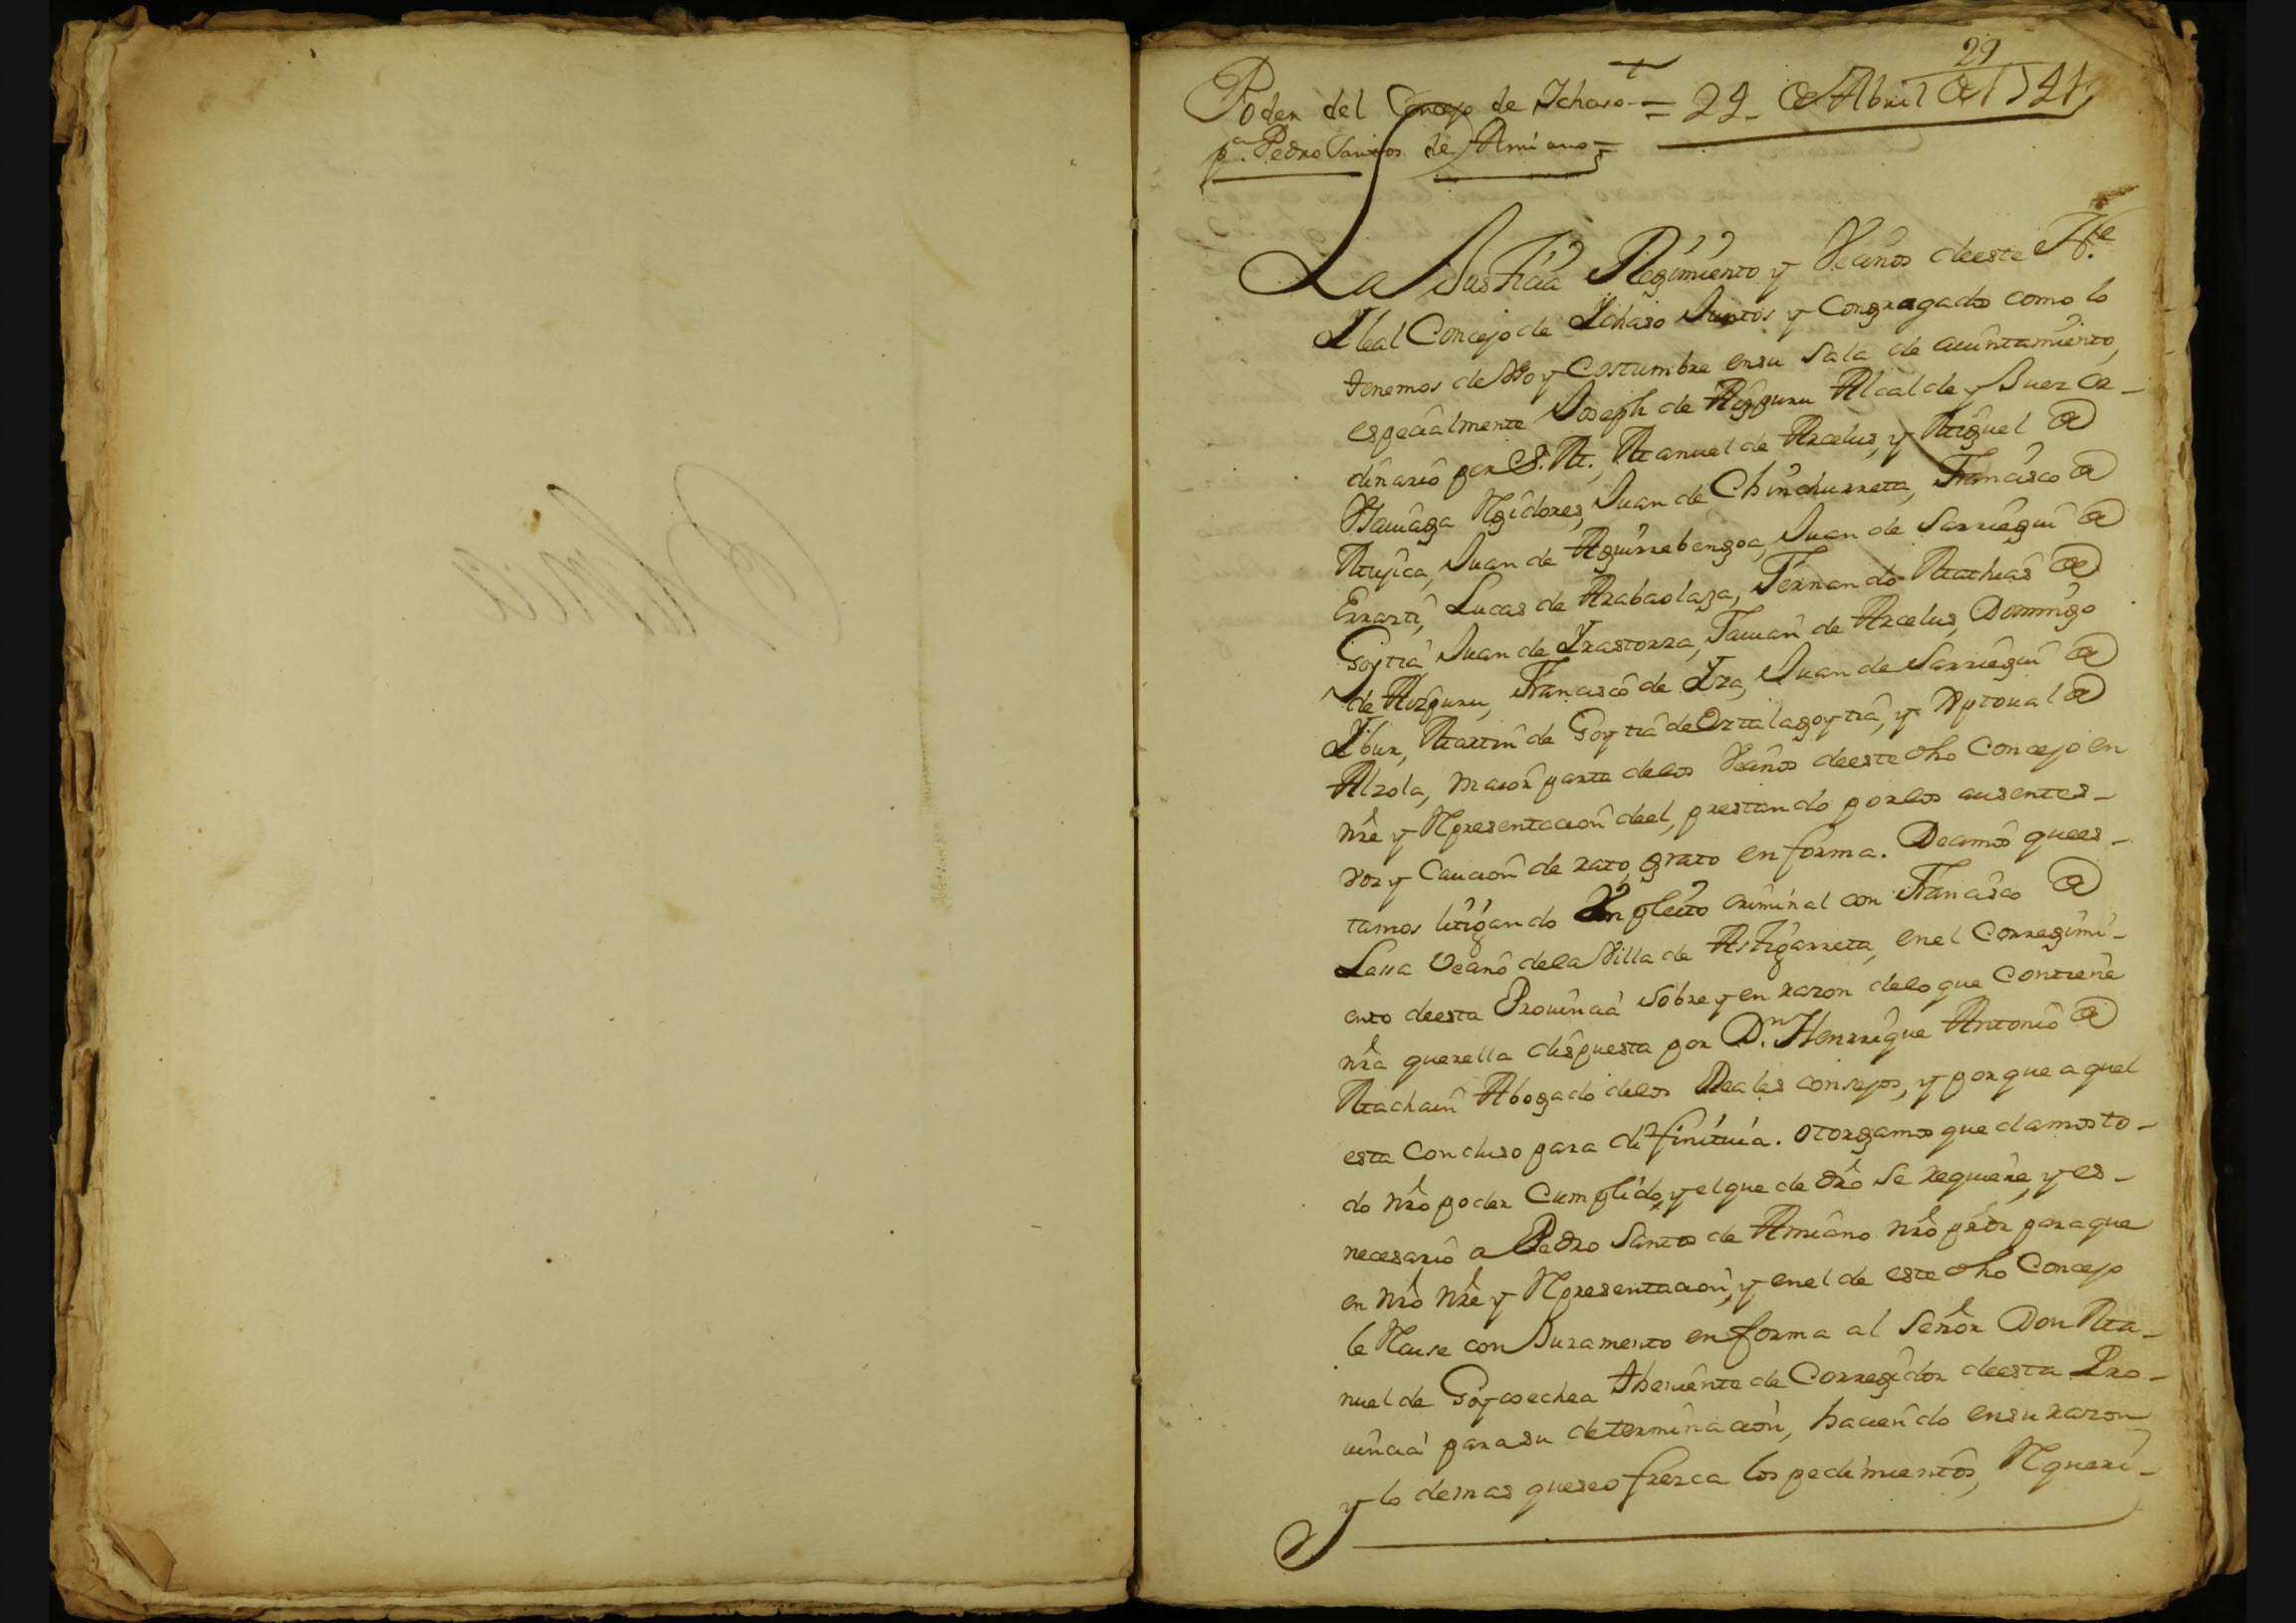 29
Poder del Concejo de Ichaso = 29 de Abril de 1741
pa. Pedro Santos de Amiano =
La Justicia Regimiento y Vecinos deeste Nbe.
Y leal Concejo de Ichaso Juntos y Congregados como lo
tenemos de Uso y Costumbre ensu Sala de aiuntamiento,
especialmente Joseph de Aizpuru Alcalde y Juez Or-
dinario por S. M., Manuel de Arcelus, y Miguel de
Regidores, Juan de Chinchurreta, Francisco de
Mujica, Juan de Aguirrebengoa, Juan de Sarriegui de
Errazti, Lucas de Arabaolaza, Fernando Mathias de
Goytia, Juan de Yrastorza, Damian de Arcelus, Domingo
de Aizpuru, Francisco de Yza, Juan de Sarriegui de
Ybur, Martin de Goytia de Orttalagoytia, y de
Alzola, maior parte delos Vecinos deeste dho Concejo en
nre y Representacion deel, prestando porlos ausentes-
voz y Caucion de rato, grato en forma. Decimos quees-
tamos litigando Un pleito criminal con Francisco de
Lasa Vecino dela Villa de Astigarreta, enel Corregimi-
ento deesta Provincia sobre y en razon delo que Contiene
nra querella dispuesta por Dn. Henrrique Antonio de
Machain Abogado delos Reales consejos, y porque aquel
esta Concluso para difinitiva. otorgamos que damos to-
do nro poder Cumplido, y elque de dro se requiere, y es-
necesario a Pedro Santos de Amiano nro pror paraque
en nro nre y Representacion, y enel de este dho Concejo
le Recuse con Juramento en forma al Señor Don Ma-
nuel de Goycoechea Theniente de Corregidor deesta Pro-
vincia para su determinacion, haciendo ensu razon
y lo demas queseofrezca los pedimientos, Requeri-